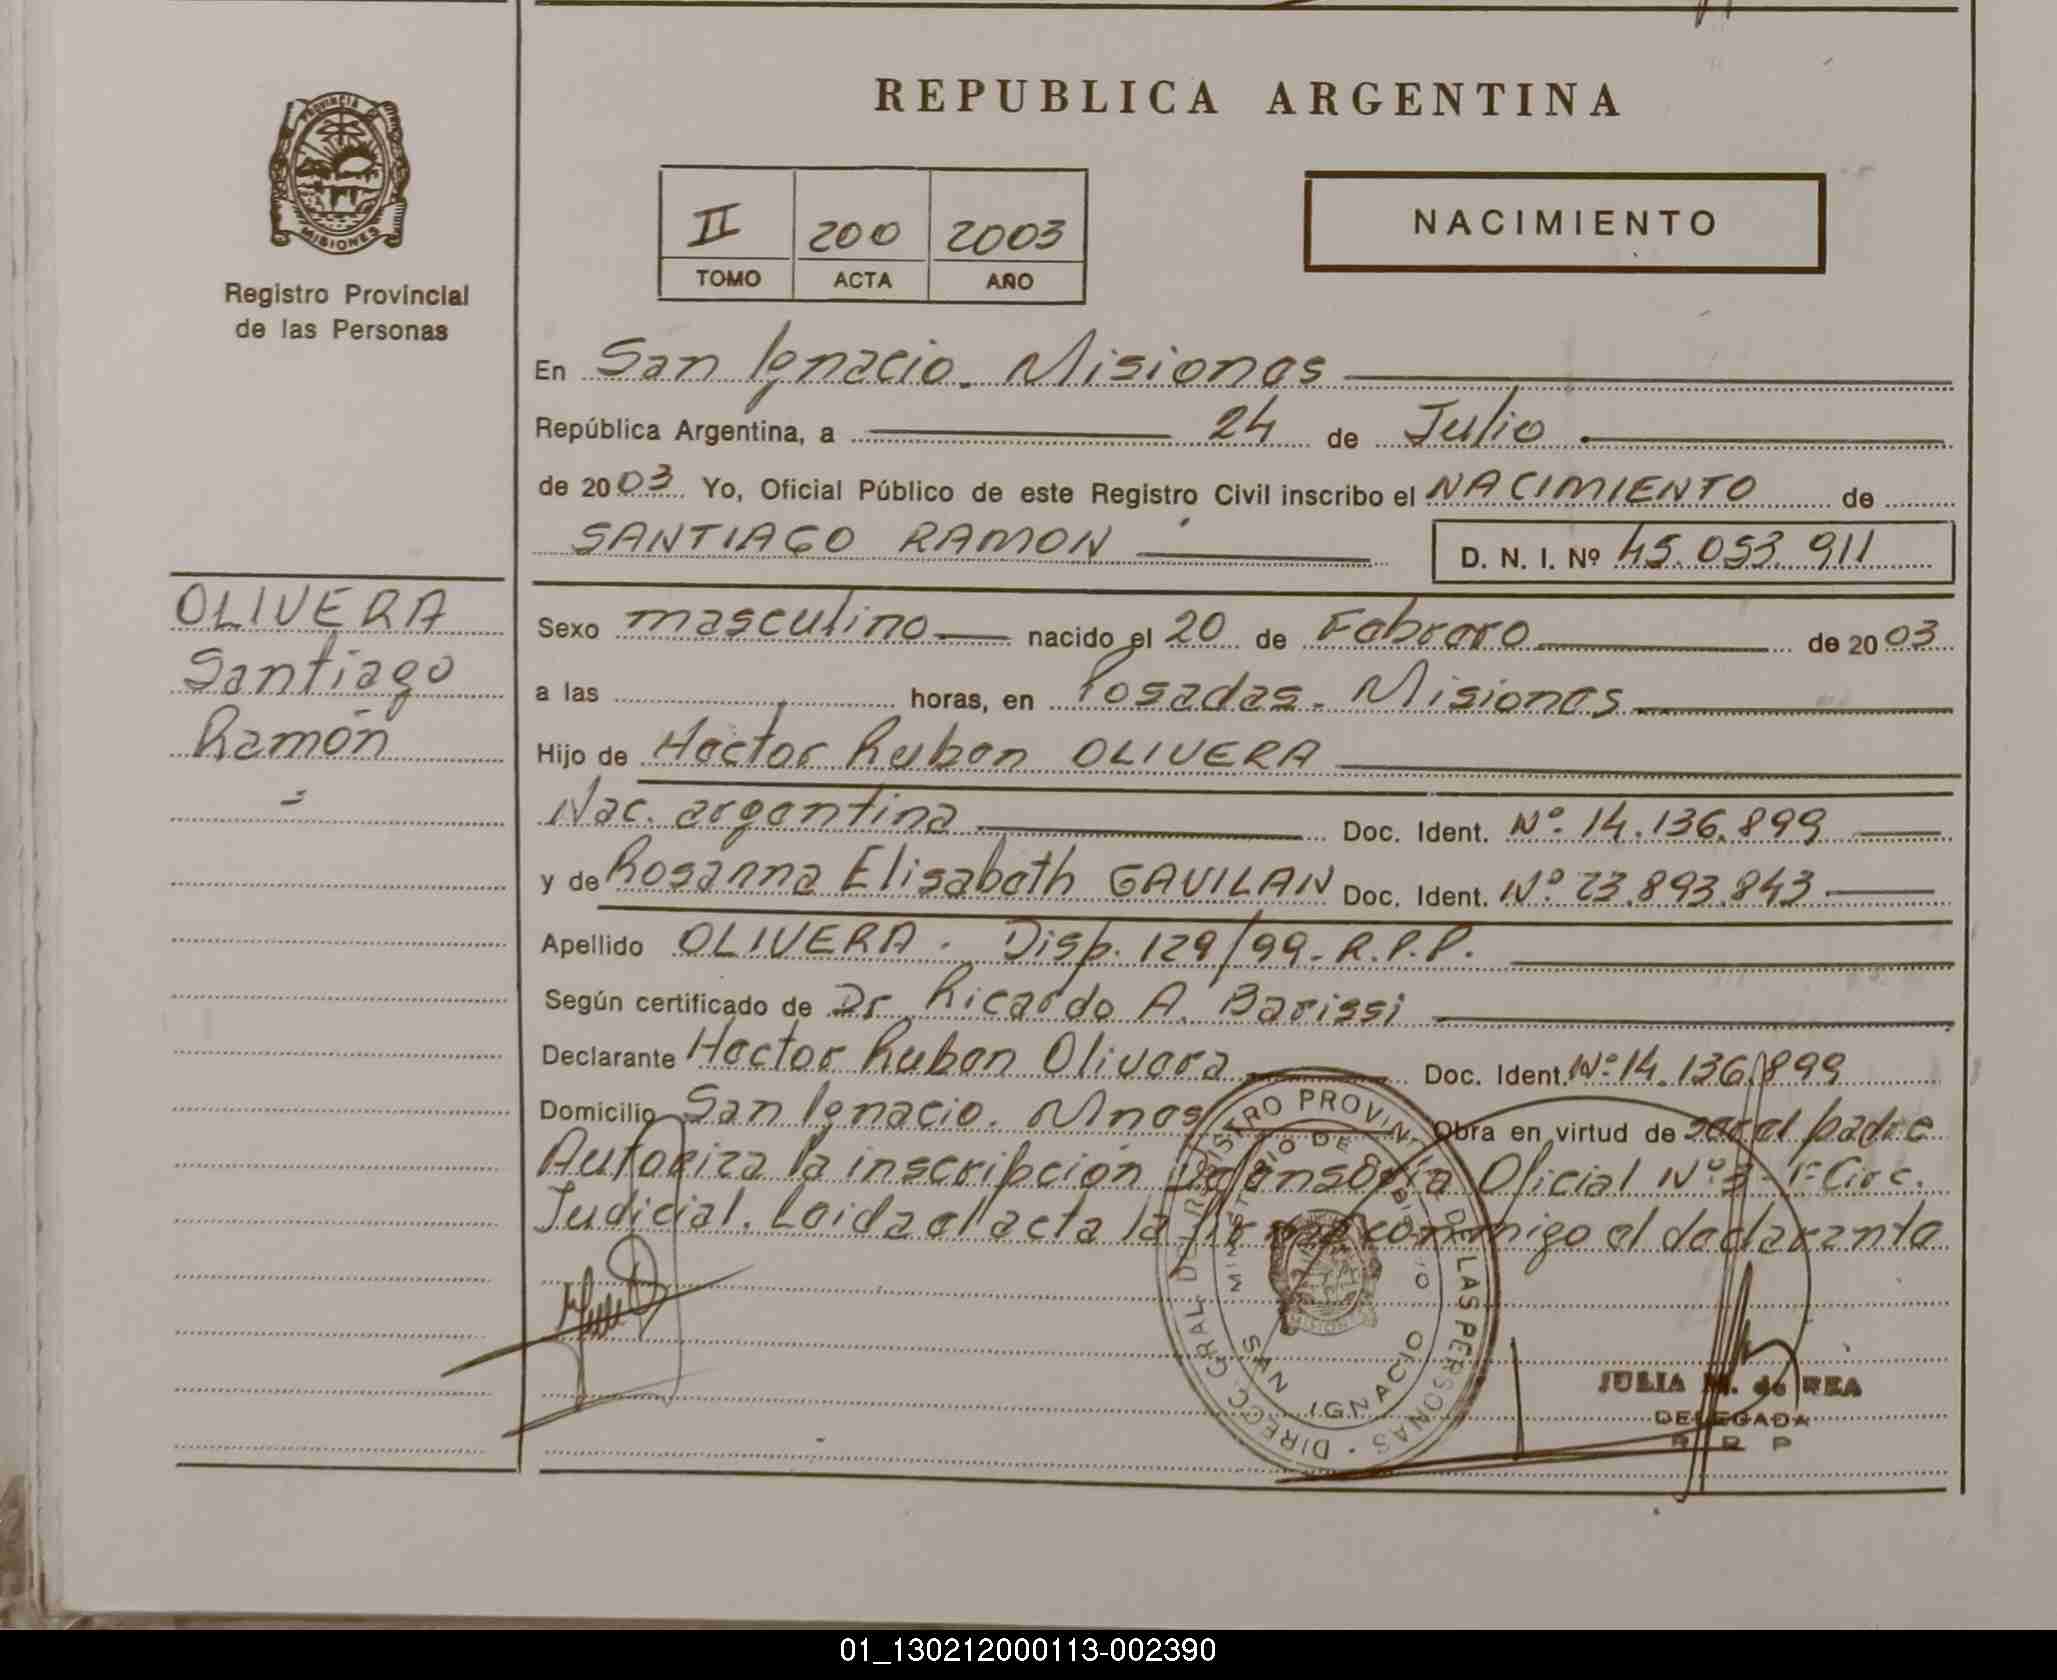 REPUBLICA ARGENTINA
PROVINCIA
MISIONES
Registro Provincial
de las Personas
II 200 2003
TOMO ACTA AÑO
NACIMIENTO
En San Ignacio. Misiones
República Argentina, a 24 de Julio
de 2003 Yo, Oficial Público de este Registro Civil inscribo el NACIMIENTO de
SANTIAGO RAMON D. N. I. Nº 45.053.911
OLIVERA
Santiago
Ramón
Sexo masculino nacido el 20 de Febrero de 2003
a las horas, en Posadas - Misiones
Hijo de Hector Ruben OLIVERA
Nac. argentina Doc. Ident. Nº. 14.136.899
y de Rosanna Elisabeth GAVILAN Doc. Ident. Nº. 23.893.843
Apellido OLIVERA. Disp. 129/99 - R.P.P.
Según certificado de Dr Ricardo A. Barissi
Declarante Hector Ruben Olivera Doc. Ident. Nº 14.136.899
Domicilio San Ignacio. Mnes Obra en virtud de ser el padre
Autoriza la inscripción Defensoría Oficial Nº 3 - 1ª Circ.
Judicial. Leida el acta la firma conmigo el declarante
DIRECC. GRAL. DEL REGISTRO PROVINCIAL DE LAS PERSONAS
MINISTERIO DE GOBIERNO
MISIONES
SAN IGNACIO
JULIA M. de REA
DELEGADA
R R P
01_130212000113-002390